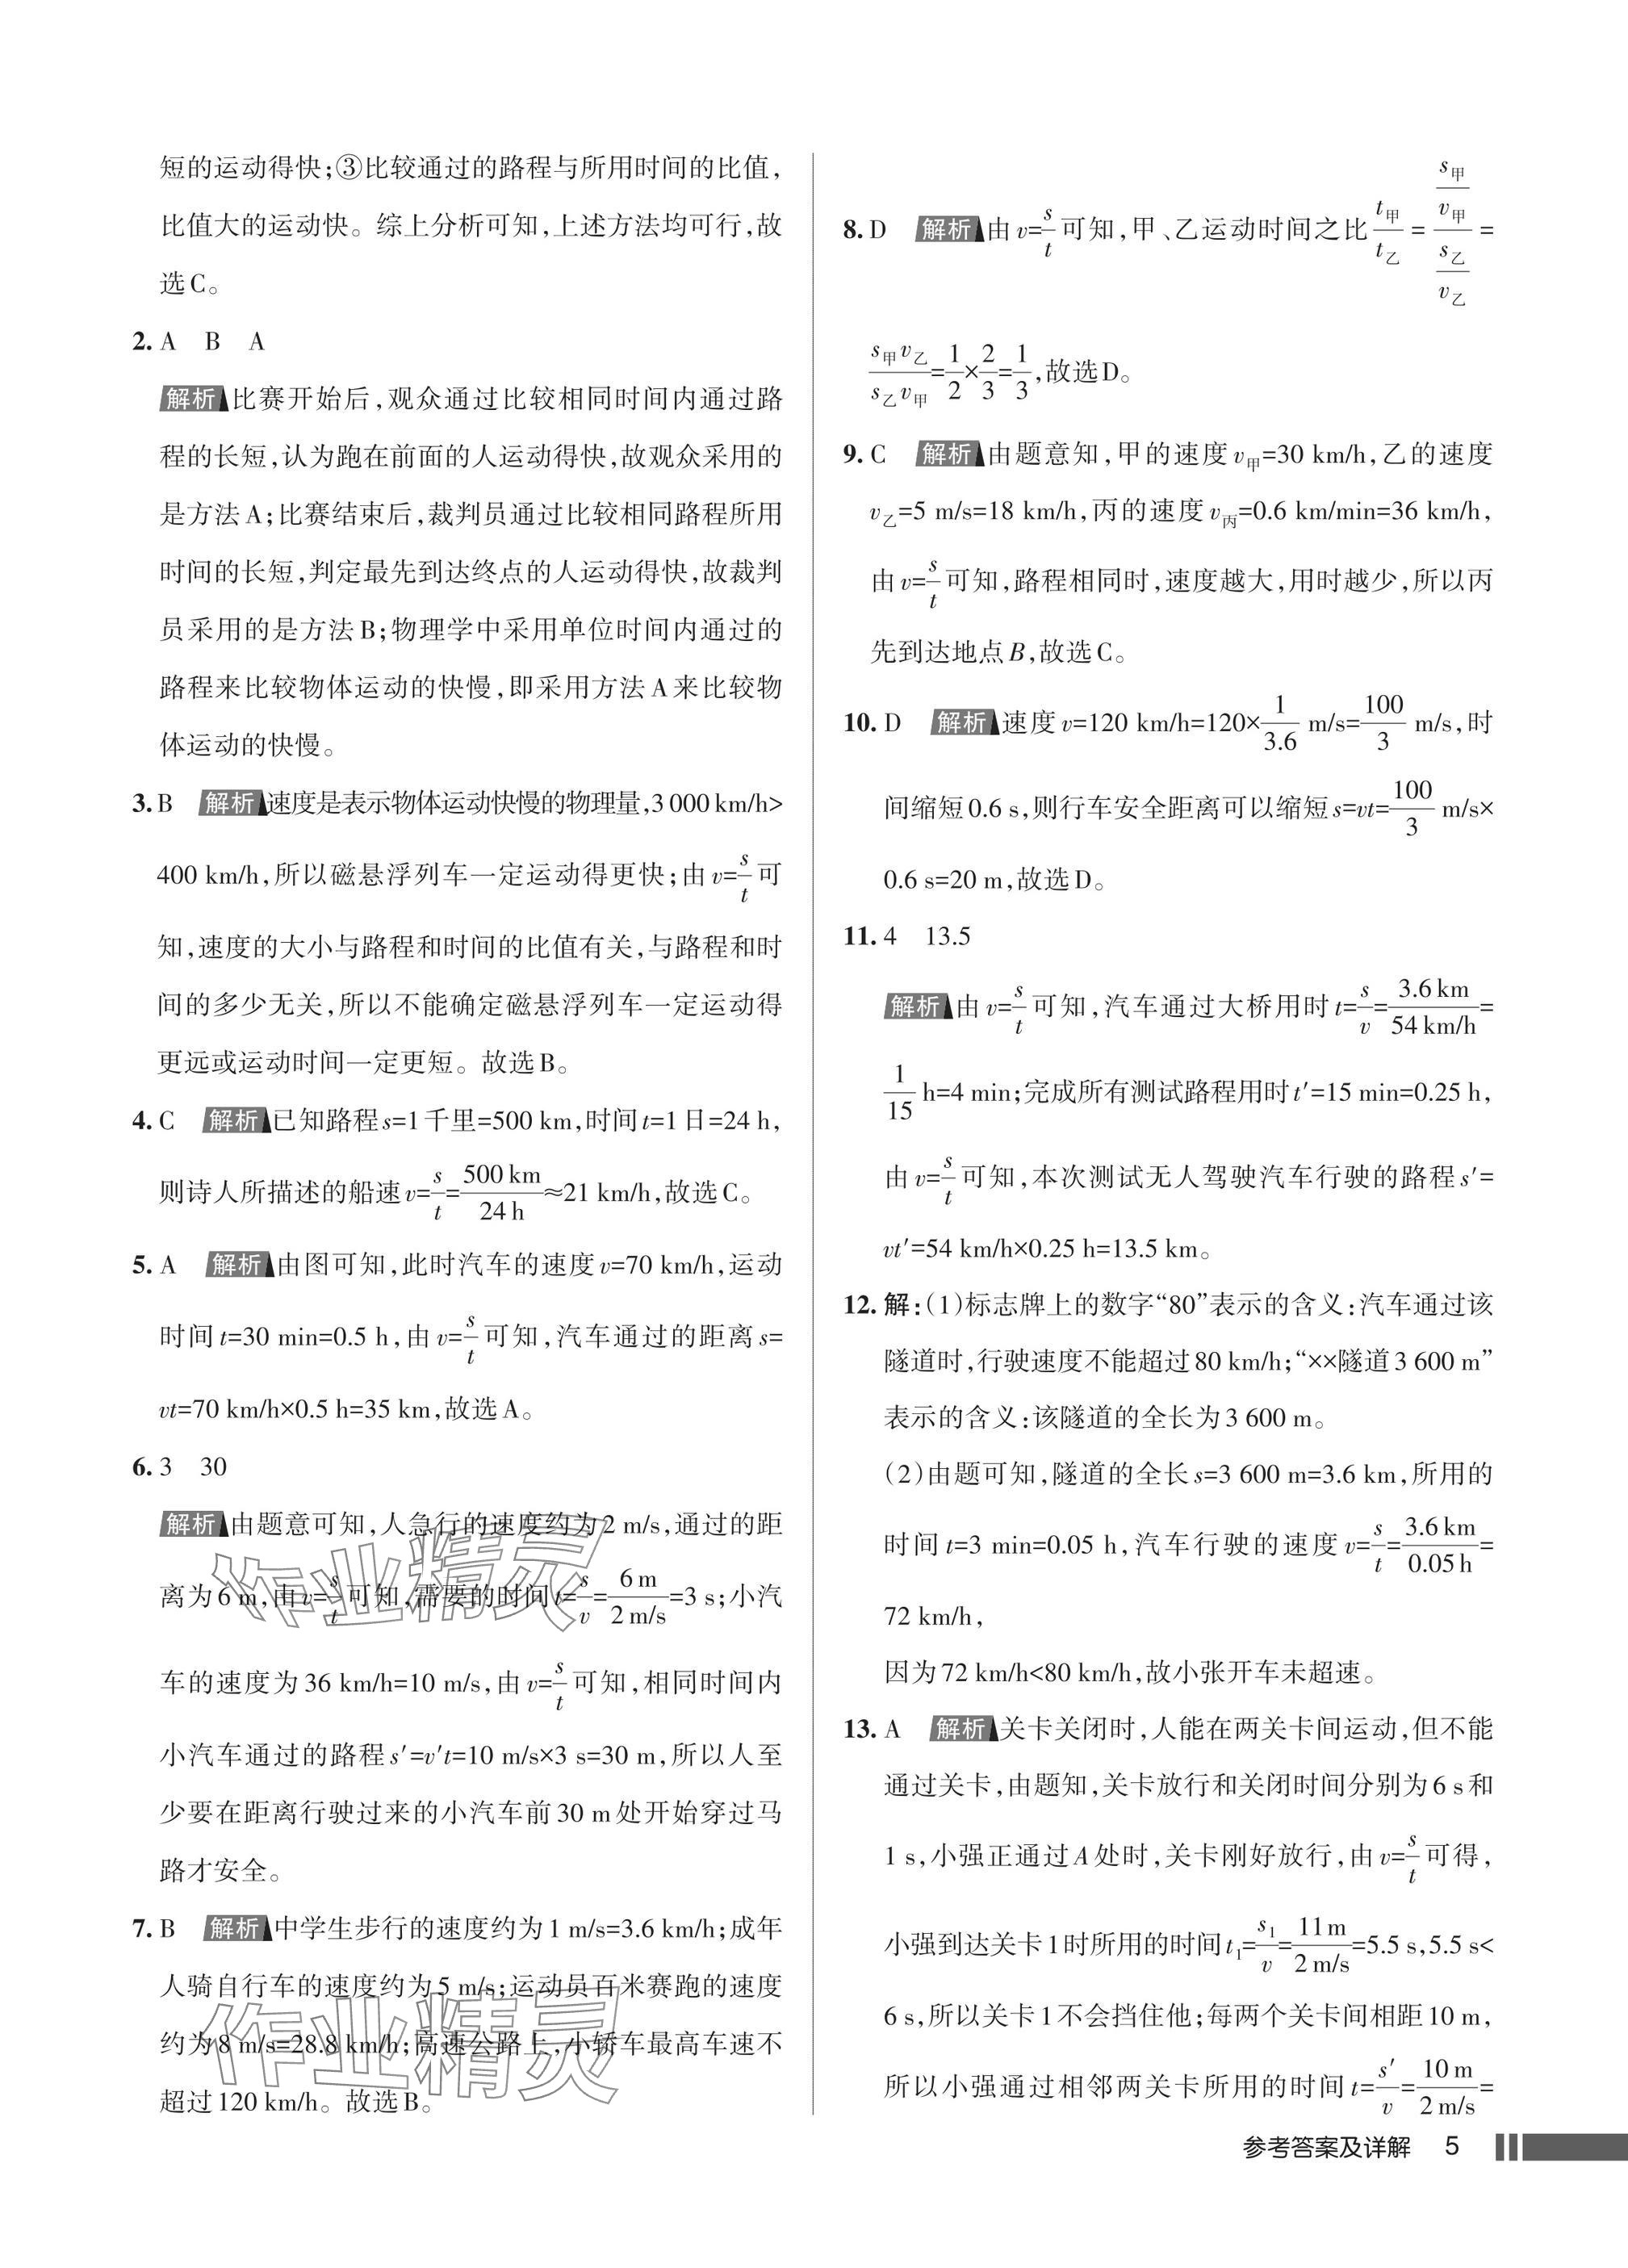 短的运动得快;③比较通过的路程与所用时间的比值,
比值大的运动快。综上分析可知,上述方法均可行,故
选C。
2. A B A
解析 比赛开始后,观众通过比较相同时间内通过路
程的长短,认为跑在前面的人运动得快,故观众采用的
是方法A;比赛结束后,裁判员通过比较相同路程所用
时间的长短,判定最先到达终点的人运动得快,故裁判
员采用的是方法B;物理学中采用单位时间内通过的
路程来比较物体运动的快慢,即采用方法A来比较物
体运动的快慢。
3. B 解析 速度是表示物体运动快慢的物理量,3 000 km/h>
400 km/h,所以磁悬浮列车一定运动得更快;由v=s/t可
知,速度的大小与路程和时间的比值有关,与路程和时
间的多少无关,所以不能确定磁悬浮列车一定运动得
更远或运动时间一定更短。故选B。
4. C 解析 已知路程s=1千里=500 km,时间t=1日=24 h,
则诗人所描述的船速v=s/t=500 km/24 h≈21 km/h,故选C。
5. A 解析 由图可知,此时汽车的速度v=70 km/h,运动
时间t=30 min=0.5 h,由v=s/t可知,汽车通过的距离s=
vt=70 km/h×0.5 h=35 km,故选A。
6. 3 30
解析 由题意可知,人急行的速度约为2 m/s,通过的距
离为6 m,由v=s/t可知,需要的时间t=s/v=6 m/2 m/s=3 s;小汽
车的速度为36 km/h=10 m/s,由v=s/t可知,相同时间内
小汽车通过的路程s′=v′t=10 m/s×3 s=30 m,所以人至
少要在距离行驶过来的小汽车前30 m处开始穿过马
路才安全。
7. B 解析 中学生步行的速度约为1 m/s=3.6 km/h;成年
人骑自行车的速度约为5 m/s;运动员百米赛跑的速度
约为8 m/s=28.8 km/h;高速公路上,小轿车最高车速不
超过120 km/h。故选B。
作业精灵
作业精灵
8. D 解析 由v=s/t可知,甲、乙运动时间之比t甲/t乙=(s甲/v甲)/(s乙/v乙)=
s甲v乙/s乙v甲=1/2×2/3=1/3,故选D。
9. C 解析 由题意知,甲的速度v甲=30 km/h,乙的速度
v乙=5 m/s=18 km/h,丙的速度v丙=0.6 km/min=36 km/h,
由v=s/t可知,路程相同时,速度越大,用时越少,所以丙
先到达地点B,故选C。
10. D 解析 速度v=120 km/h=120×1/3.6 m/s=100/3 m/s,时
间缩短0.6 s,则行车安全距离可以缩短s=vt=100/3 m/s×
0.6 s=20 m,故选D。
11. 4 13.5
解析 由v=s/t可知,汽车通过大桥用时t=s/v=3.6 km/54 km/h=
1/15 h=4 min;完成所有测试路程用时t′=15 min=0.25 h,
由v=s/t可知,本次测试无人驾驶汽车行驶的路程s′=
vt′=54 km/h×0.25 h=13.5 km。
12. 解:(1)标志牌上的数字“80”表示的含义:汽车通过该
隧道时,行驶速度不能超过80 km/h;“××隧道3 600 m”
表示的含义:该隧道的全长为3 600 m。
(2)由题可知,隧道的全长s=3 600 m=3.6 km,所用的
时间t=3 min=0.05 h,汽车行驶的速度v=s/t=3.6 km/0.05 h=
72 km/h,
因为72 km/h<80 km/h,故小张开车未超速。
13. A 解析 关卡关闭时,人能在两关卡间运动,但不能
通过关卡,由题知,关卡放行和关闭时间分别为6 s和
1 s,小强正通过A处时,关卡刚好放行,由v=s/t可得,
小强到达关卡1时所用的时间t₁=s₁/v=11 m/2 m/s=5.5 s,5.5 s<
6 s,所以关卡1不会挡住他;每两个关卡间相距10 m,
所以小强通过相邻两关卡所用的时间t=s′/v=10 m/2 m/s=
参考答案及详解 5